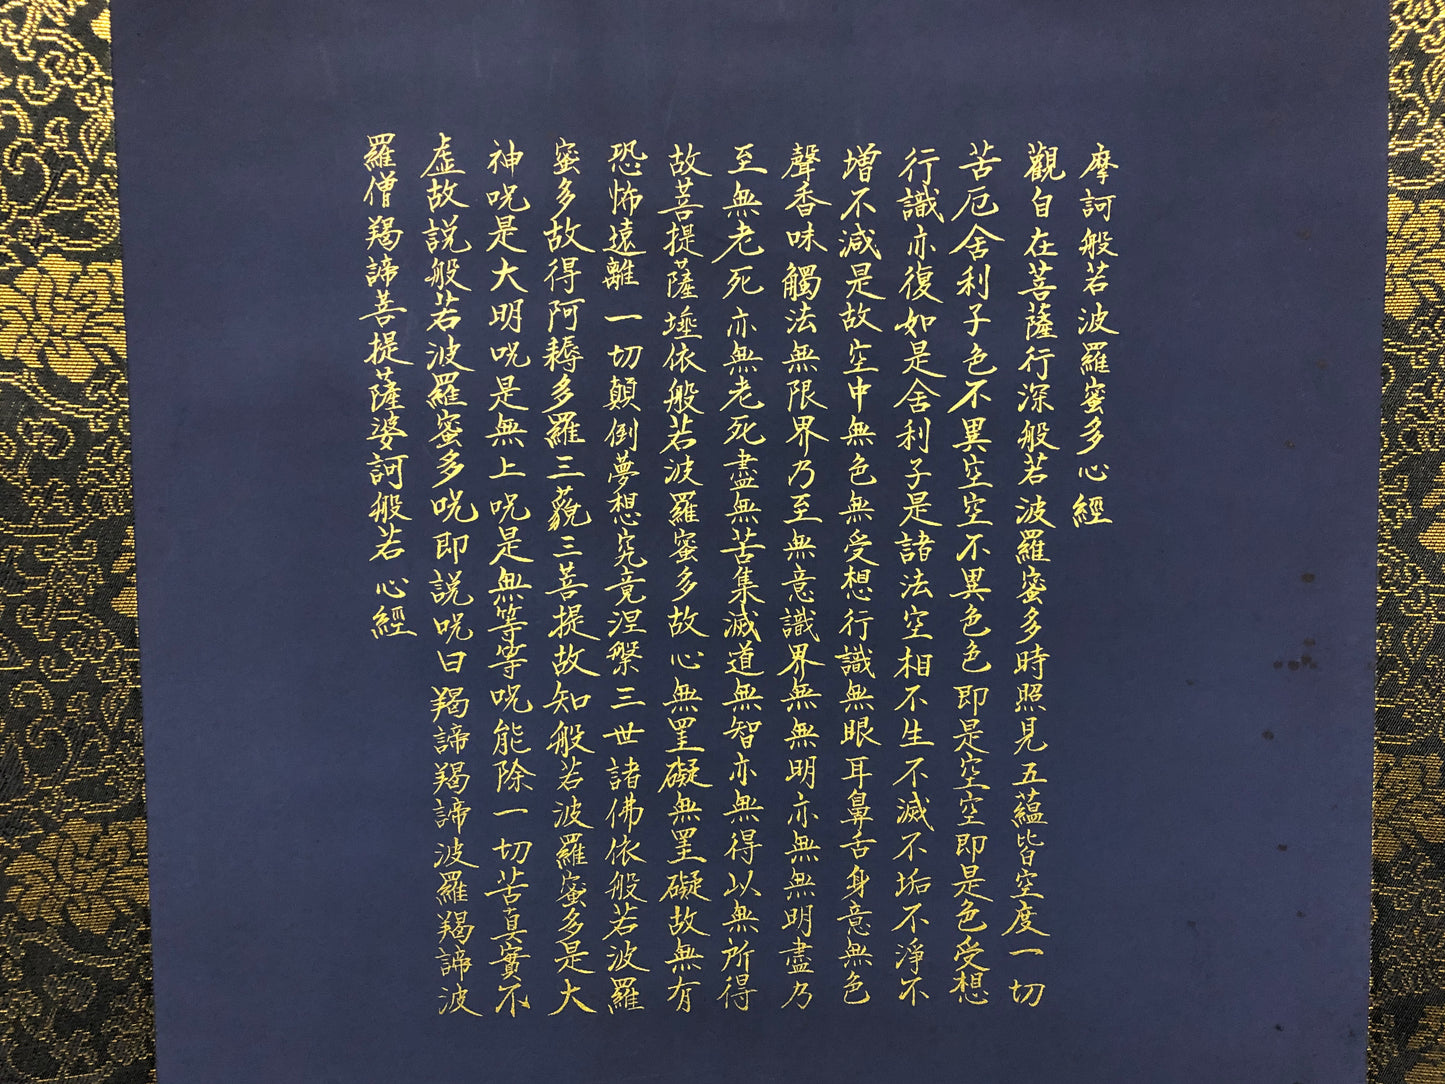 摩訶般若波羅蜜多心經
觀自在菩薩行深般若波羅蜜多時照見五蘊皆空度一切
苦厄舍利子色不異空空不異色色即是空空即是色受想
行識亦復如是舍利子是諸法空相不生不滅不垢不淨不
增不減是故空中無色無受想行識無眼耳鼻舌身意無色
聲香味觸法無限界乃至無意識界無無明亦無無明盡乃
至無老死亦無老死盡無苦集滅道無智亦無得以無所得
故菩提薩埵依般若波羅蜜多故心無罣礙無罣礙故無有
恐怖遠離一切顛倒夢想究竟涅槃三世諸佛依般若波羅
蜜多故得阿耨多羅三藐三菩提故知般若波羅蜜多是大
神呪是大明呪是無上呪是無等等呪能除一切苦真實不
虛故説般若波羅蜜多呪即説呪曰羯諦羯諦波羅羯諦波
羅僧羯諦菩提薩婆訶般若心經